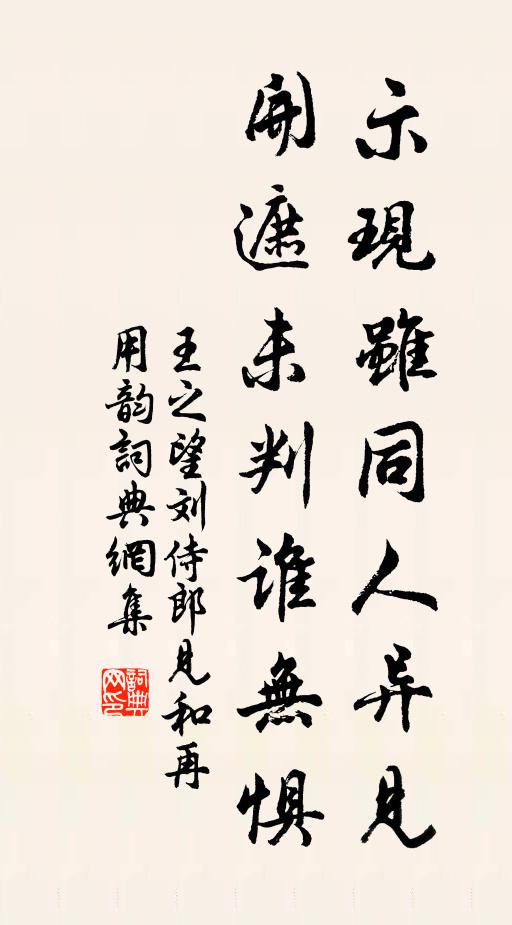 示現雖同人异見
開遮未判誰無惧
王之望刘侍郎見和再
用韵詞典網集
詞典网印